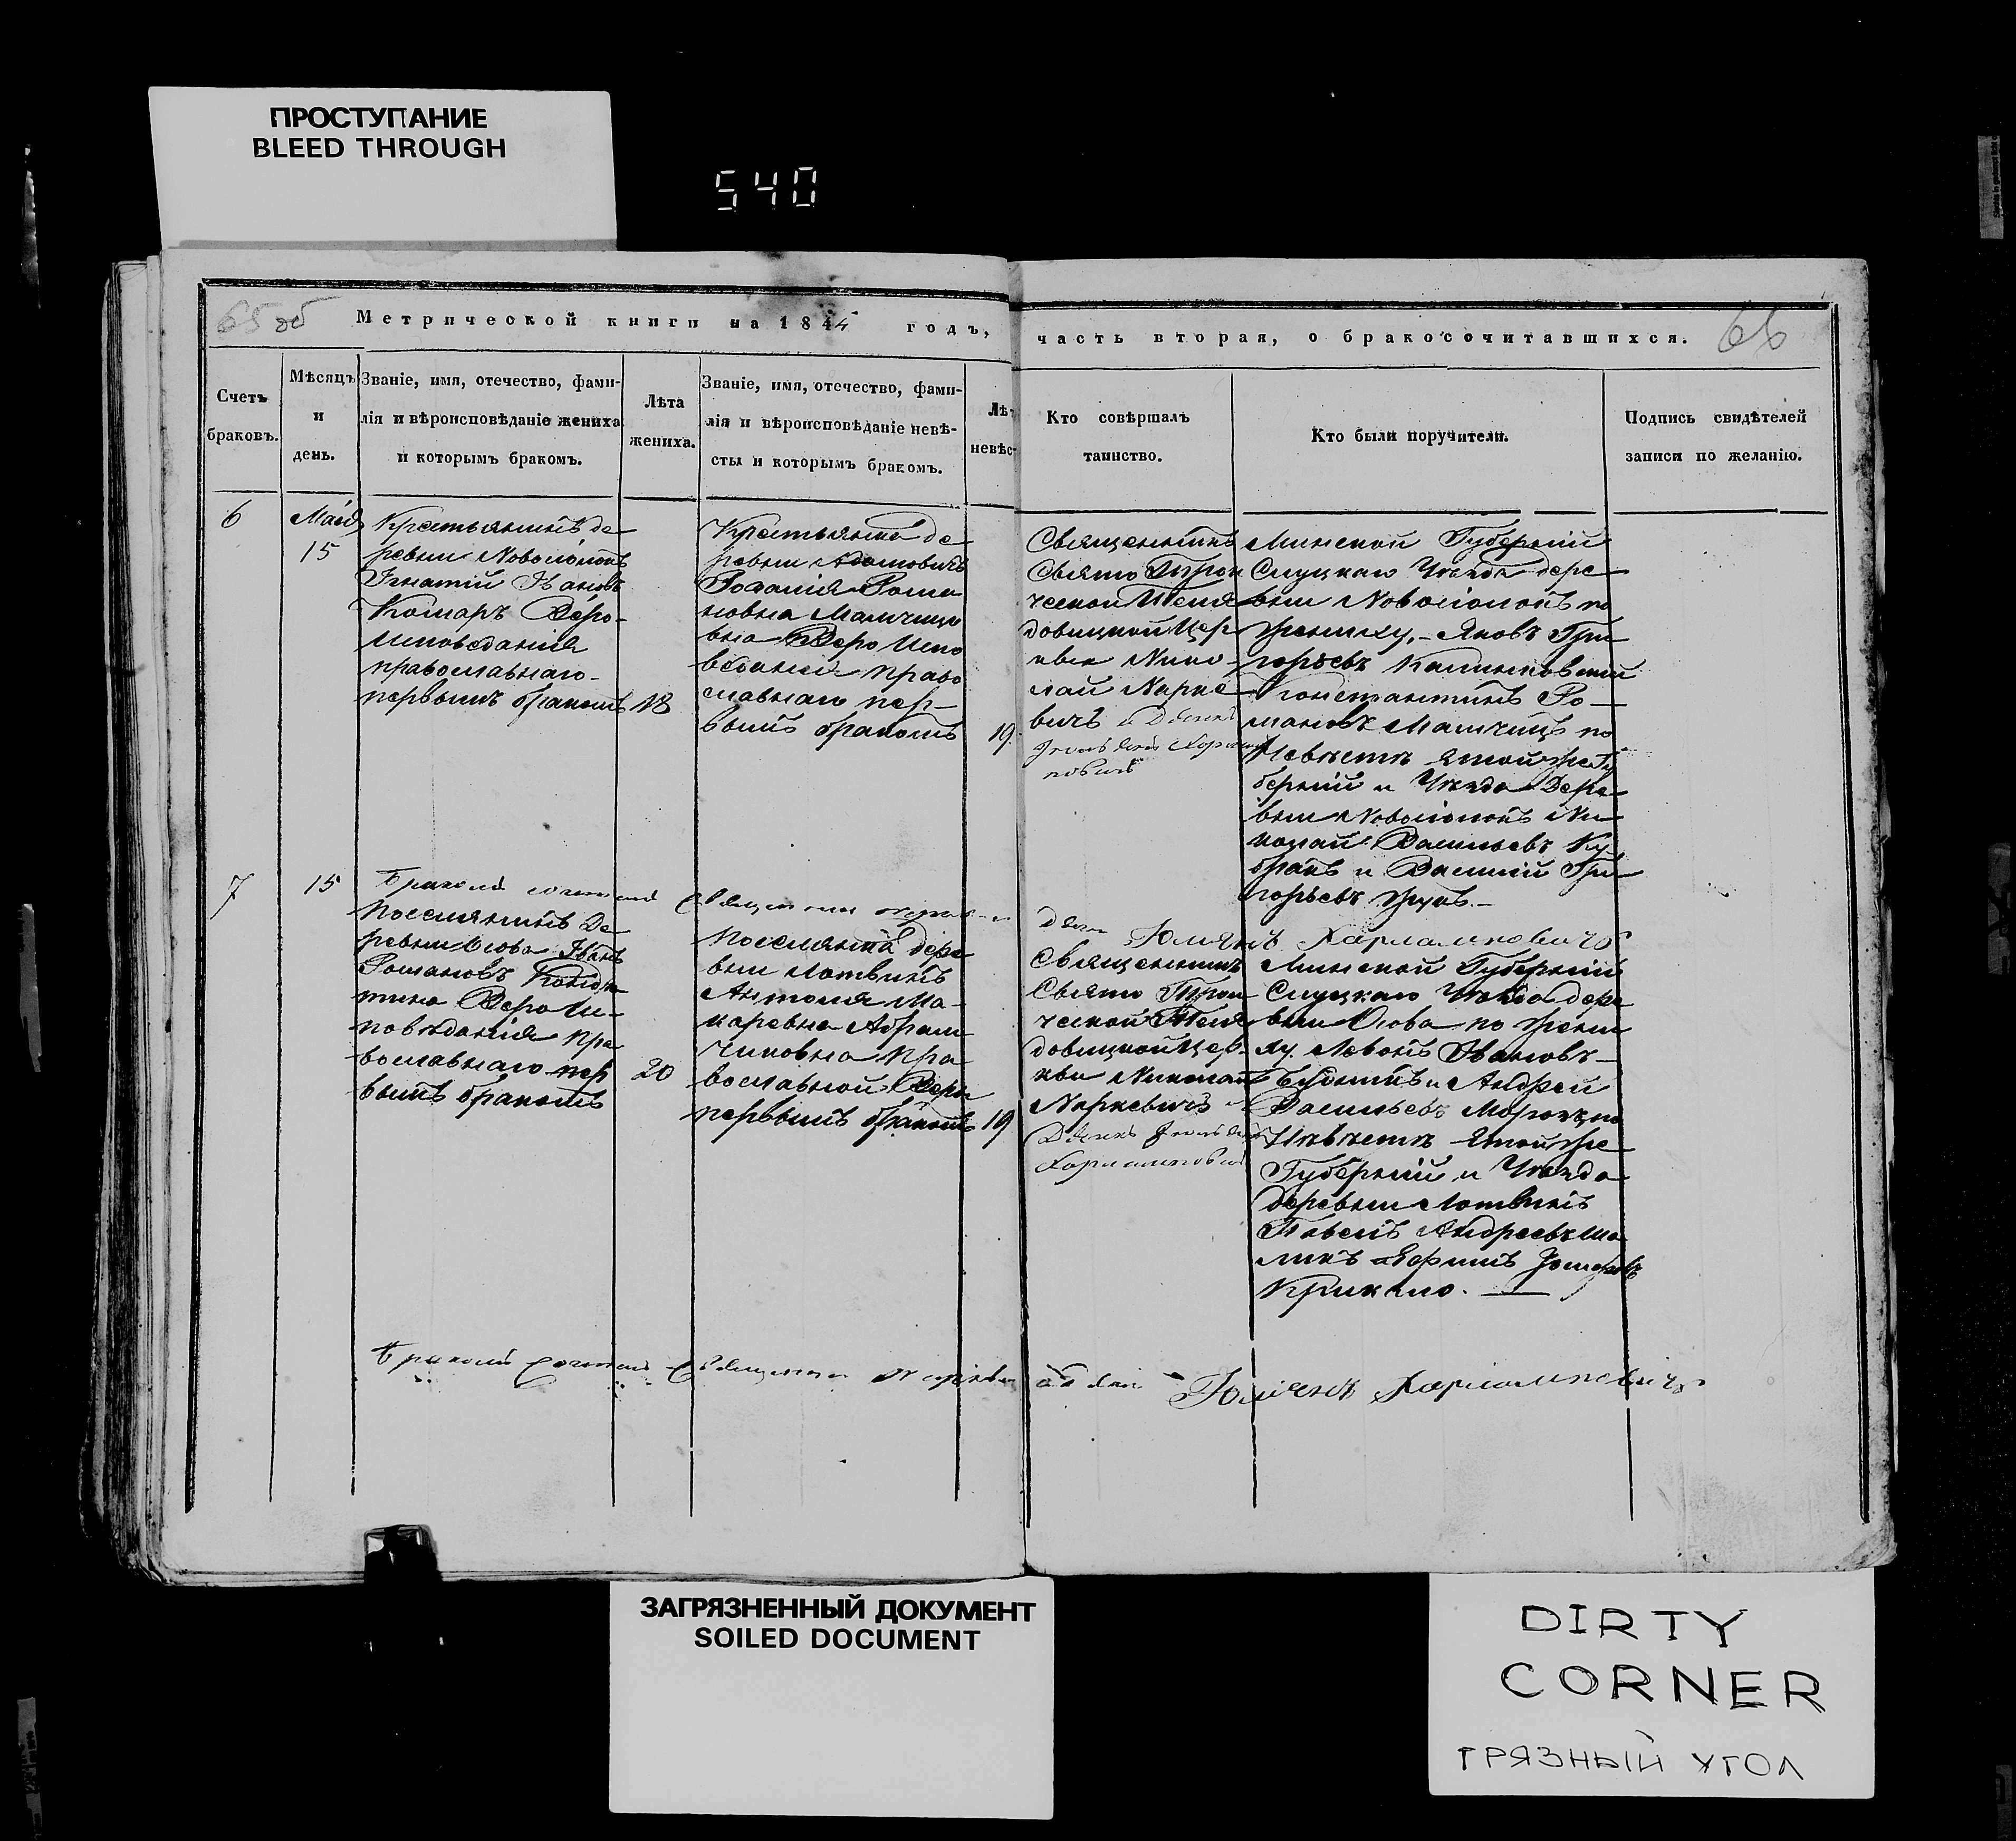 ПРОСТУПАНИЕ
BLEED THROUGH
540
65 об
Метрической книги на 1844 годъ,
часть вторая, о бракосочитавшихся.
66
Счетъ
браковъ.
Мѣсяцъ
и
день.
Званіе, имя, отечество, фами-
лія и вѣроисповѣданіе жениха
и которымъ бракомъ.
Лѣта
жениха.
Званіе, имя, отечество, фами-
лія и вѣроисповѣданіе невѣ-
сты и которымъ бракомъ.
Лѣт
невѣс
Кто совѣршалъ
таинство.
Кто были поручители.
Подпись свидѣтелей
записи по желанію.
6
Маія
15
Крестьянинъ де
ревни Новосіолокъ
Игнатій Ивановъ
Комаръ Веро-
исповеданія
православнаго
первымъ бракомъ
18
Крестьянка де
ревни Адамовичъ
Розалія Рома
новна Мамчицо
вна Веро Испо
веданія право
славнаго пер-
вымъ бракомъ
19.
Священникъ
Свято Трои
ческой
довицкой Цер
кви Нико-
лай Нарке
вичъ и Дячекъ
Минской Губерніи
Слуцкаго Уѣзда дере
вни Новосіолокъ по
жениху, Яковъ Гри
горьевъ Калиновскій
Константинъ Ро-
мановъ Мамчицъ по
Невѣстѣ той же Гу
берніи и Уѣзда Дере
вни Новосіолокъ Ни
колай Васильевъ Ку
бракъ и Василій Гри
горьевъ Жукъ.
Бракомъ сочеталъ Священникъ
Юлиянъ Харламповичъ
7
15
Поселянинъ Де
ревни Осова Иванъ
Романовъ
Веро Ис-
повѣданія Пра
вославнаго пер
вымъ бракомъ
20
Поселянка дере
вни Лотвинъ
Антоля Ма-
каревна Абрам
чиковна Пра
вославной Веры
первымъ бракомъ
19
Священникъ
Свято Трои
ческой
довицкой Цер-
кви Николай
Наркевичъ
Дячекъ
Минской Губерніи
Слуцкаго Уѣзда дере
вни Осова по жени
ху. Левонъ Ивановъ
и Андрей
Васильевъ Морозъ по
Невѣстѣ той же
Губерніи и Уѣзда
Деревни Лотвинъ
Павелъ Андреевъ
Крикало.
Бракомъ сочеталъ Священникъ
Юлиянъ Харламповичъ
ЗАГРЯЗНЕННЫЙ ДОКУМЕНТ
SOILED DOCUMENT
DIRTY
CORNER
ГРЯЗНЫЙ УГОЛ